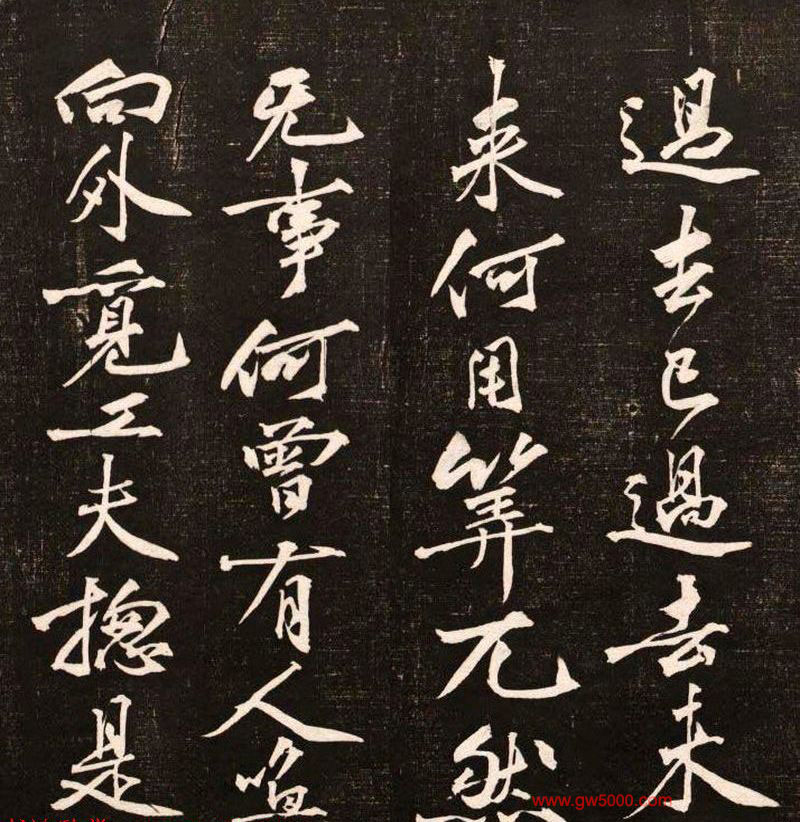 過去已過去未
来何用筭兀然
无事何曾有人喚
向外覓工夫揔是
www.gw5000.com